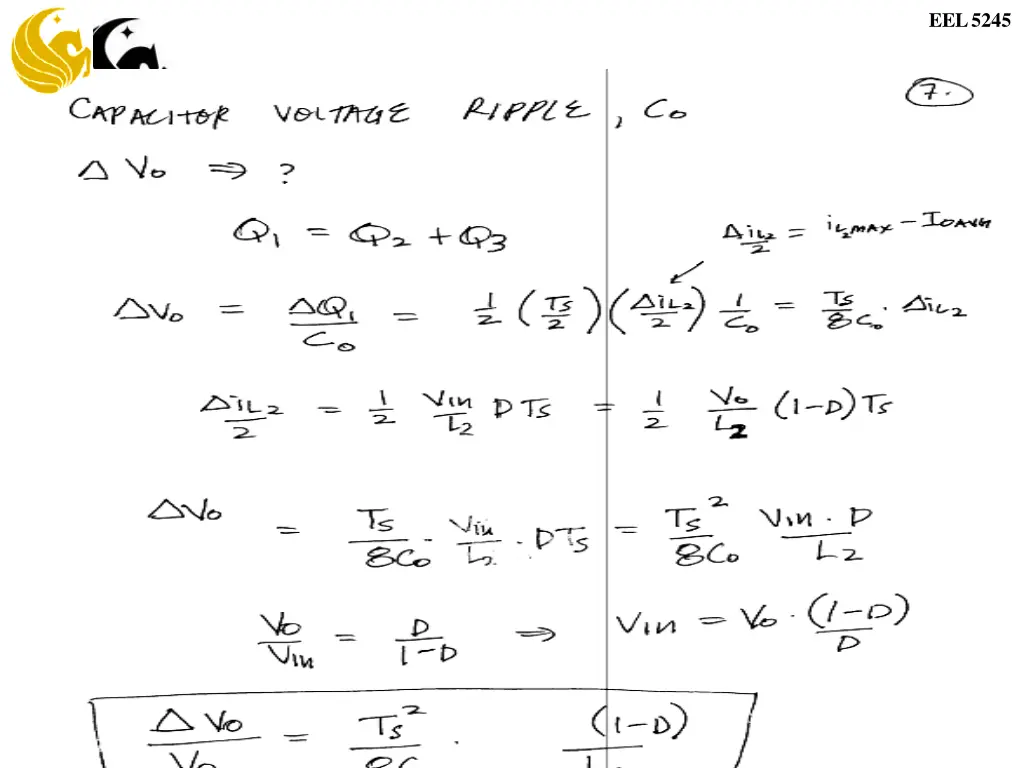 EEL 5245
7.
CAPACITOR VOLTAGE RIPPLE, Co
Δ Vo ⇒ ?
Q1 = Q2 + Q3
ΔiL2/2 = iL2MAX − IOAVG
ΔVo = ΔQ1/Co = 1/2 (Ts/2)(ΔiL2/2) 1/Co = Ts/8Co · ΔiL2
ΔiL2/2 = 1/2 Vin/L2 DTs = 1/2 Vo/L2 (1-D)Ts
ΔVo = Ts/8Co · Vin/L2 · DTs = Ts²/8Co Vin·D/L2
Vo/Vin = D/1-D ⇒ Vin = Vo · (1-D)/D
ΔVo/Vo = Ts²/8C · (1-D)/L